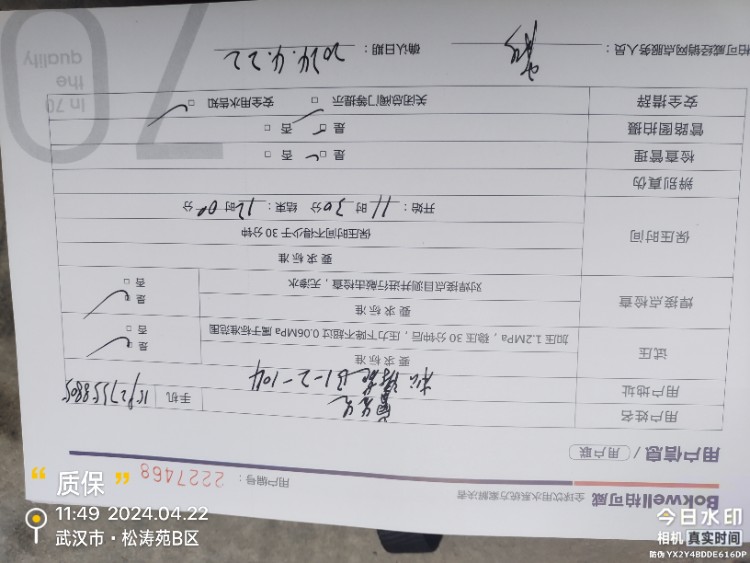 Bokwell柏可威 全球饮用水系统方案解决者
用户编号：2227468
用户信息 / 用户联
用户姓名
手机
用户地址 B1-2-104
试压
要求标准
加压1.2MPa，稳压30分钟后，压力下降不超过0.06MPa属于标准范围
是
否
焊接点检查
要求标准
对焊接点目测并进行敲击检查，无渗水
是
否
保压时间
要求标准
保压时间不得少于30分钟
开始：11时30分 结束：12时00分
辨别真伪
检查管理 是 否
管路图拍摄 是 否
安全措辞 关闭总阀门等提示 安全用水告知
柏可威经销网点服务人员：
确认日期：2024.4.22
In 70
the
quality
70
质保
11:49 2024.04.22
武汉市·松涛苑B区
今日水印
相机 真实时间
防伪 YX2Y4BDDE616DP